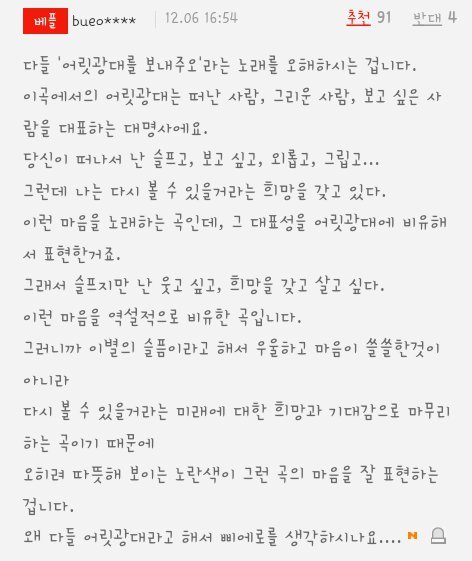 베플 bueo**** 12.06 16:54 추천 91 반대 4
다들 '어릿광대를 보내주오'라는 노래를 오해하시는 겁니다.
이곡에서의 어릿광대는 떠난 사람, 그리운 사람, 보고 싶은 사
람을 대표하는 대명사에요.
당신이 떠나서 난 슬프고, 보고 싶고, 외롭고, 그립고...
그런데 나는 다시 볼 수 있을거라는 희망을 갖고 있다.
이런 마음을 노래하는 곡인데, 그 대표성을 어릿광대에 비유해
서 표현한거죠.
그래서 슬프지만 난 웃고 싶고, 희망을 갖고 살고 싶다.
이런 마음을 역설적으로 비유한 곡입니다.
그러니까 이별의 슬픔이라고 해서 우울하고 마음이 쓸쓸한것이
아니라
다시 볼 수 있을거라는 미래에 대한 희망과 기대감으로 마무리
하는 곡이기 때문에
오히려 따뜻해 보이는 노란색이 그런 곡의 마음을 잘 표현하는
겁니다.
왜 다들 어릿광대라고 해서 삐에로를 생각하시나요.... N